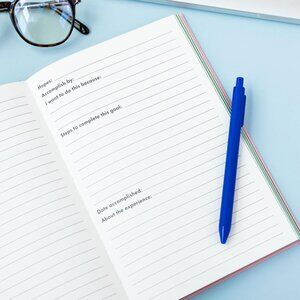 Hopes:
Accomplish by:
I want to do this because:
Steps to complete this goal:
Date accomplished:
About the experience: